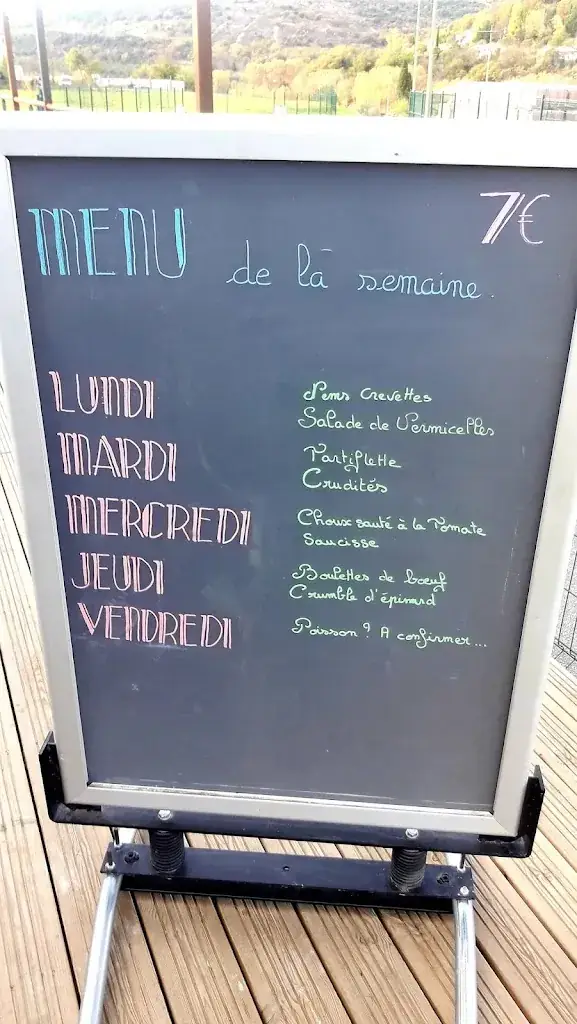 MENU de là semaine.
7€
LUNDI
Nems crevettes
Salade de Vermicelles
MARDI
Tartiflette
Crudités
MERCREDI
Choux sauté à la Tomate
Saucisse
JEUDI
Boulettes de boeuf
Crumble d'épinard
VENDREDI
Poisson? A confirmer...